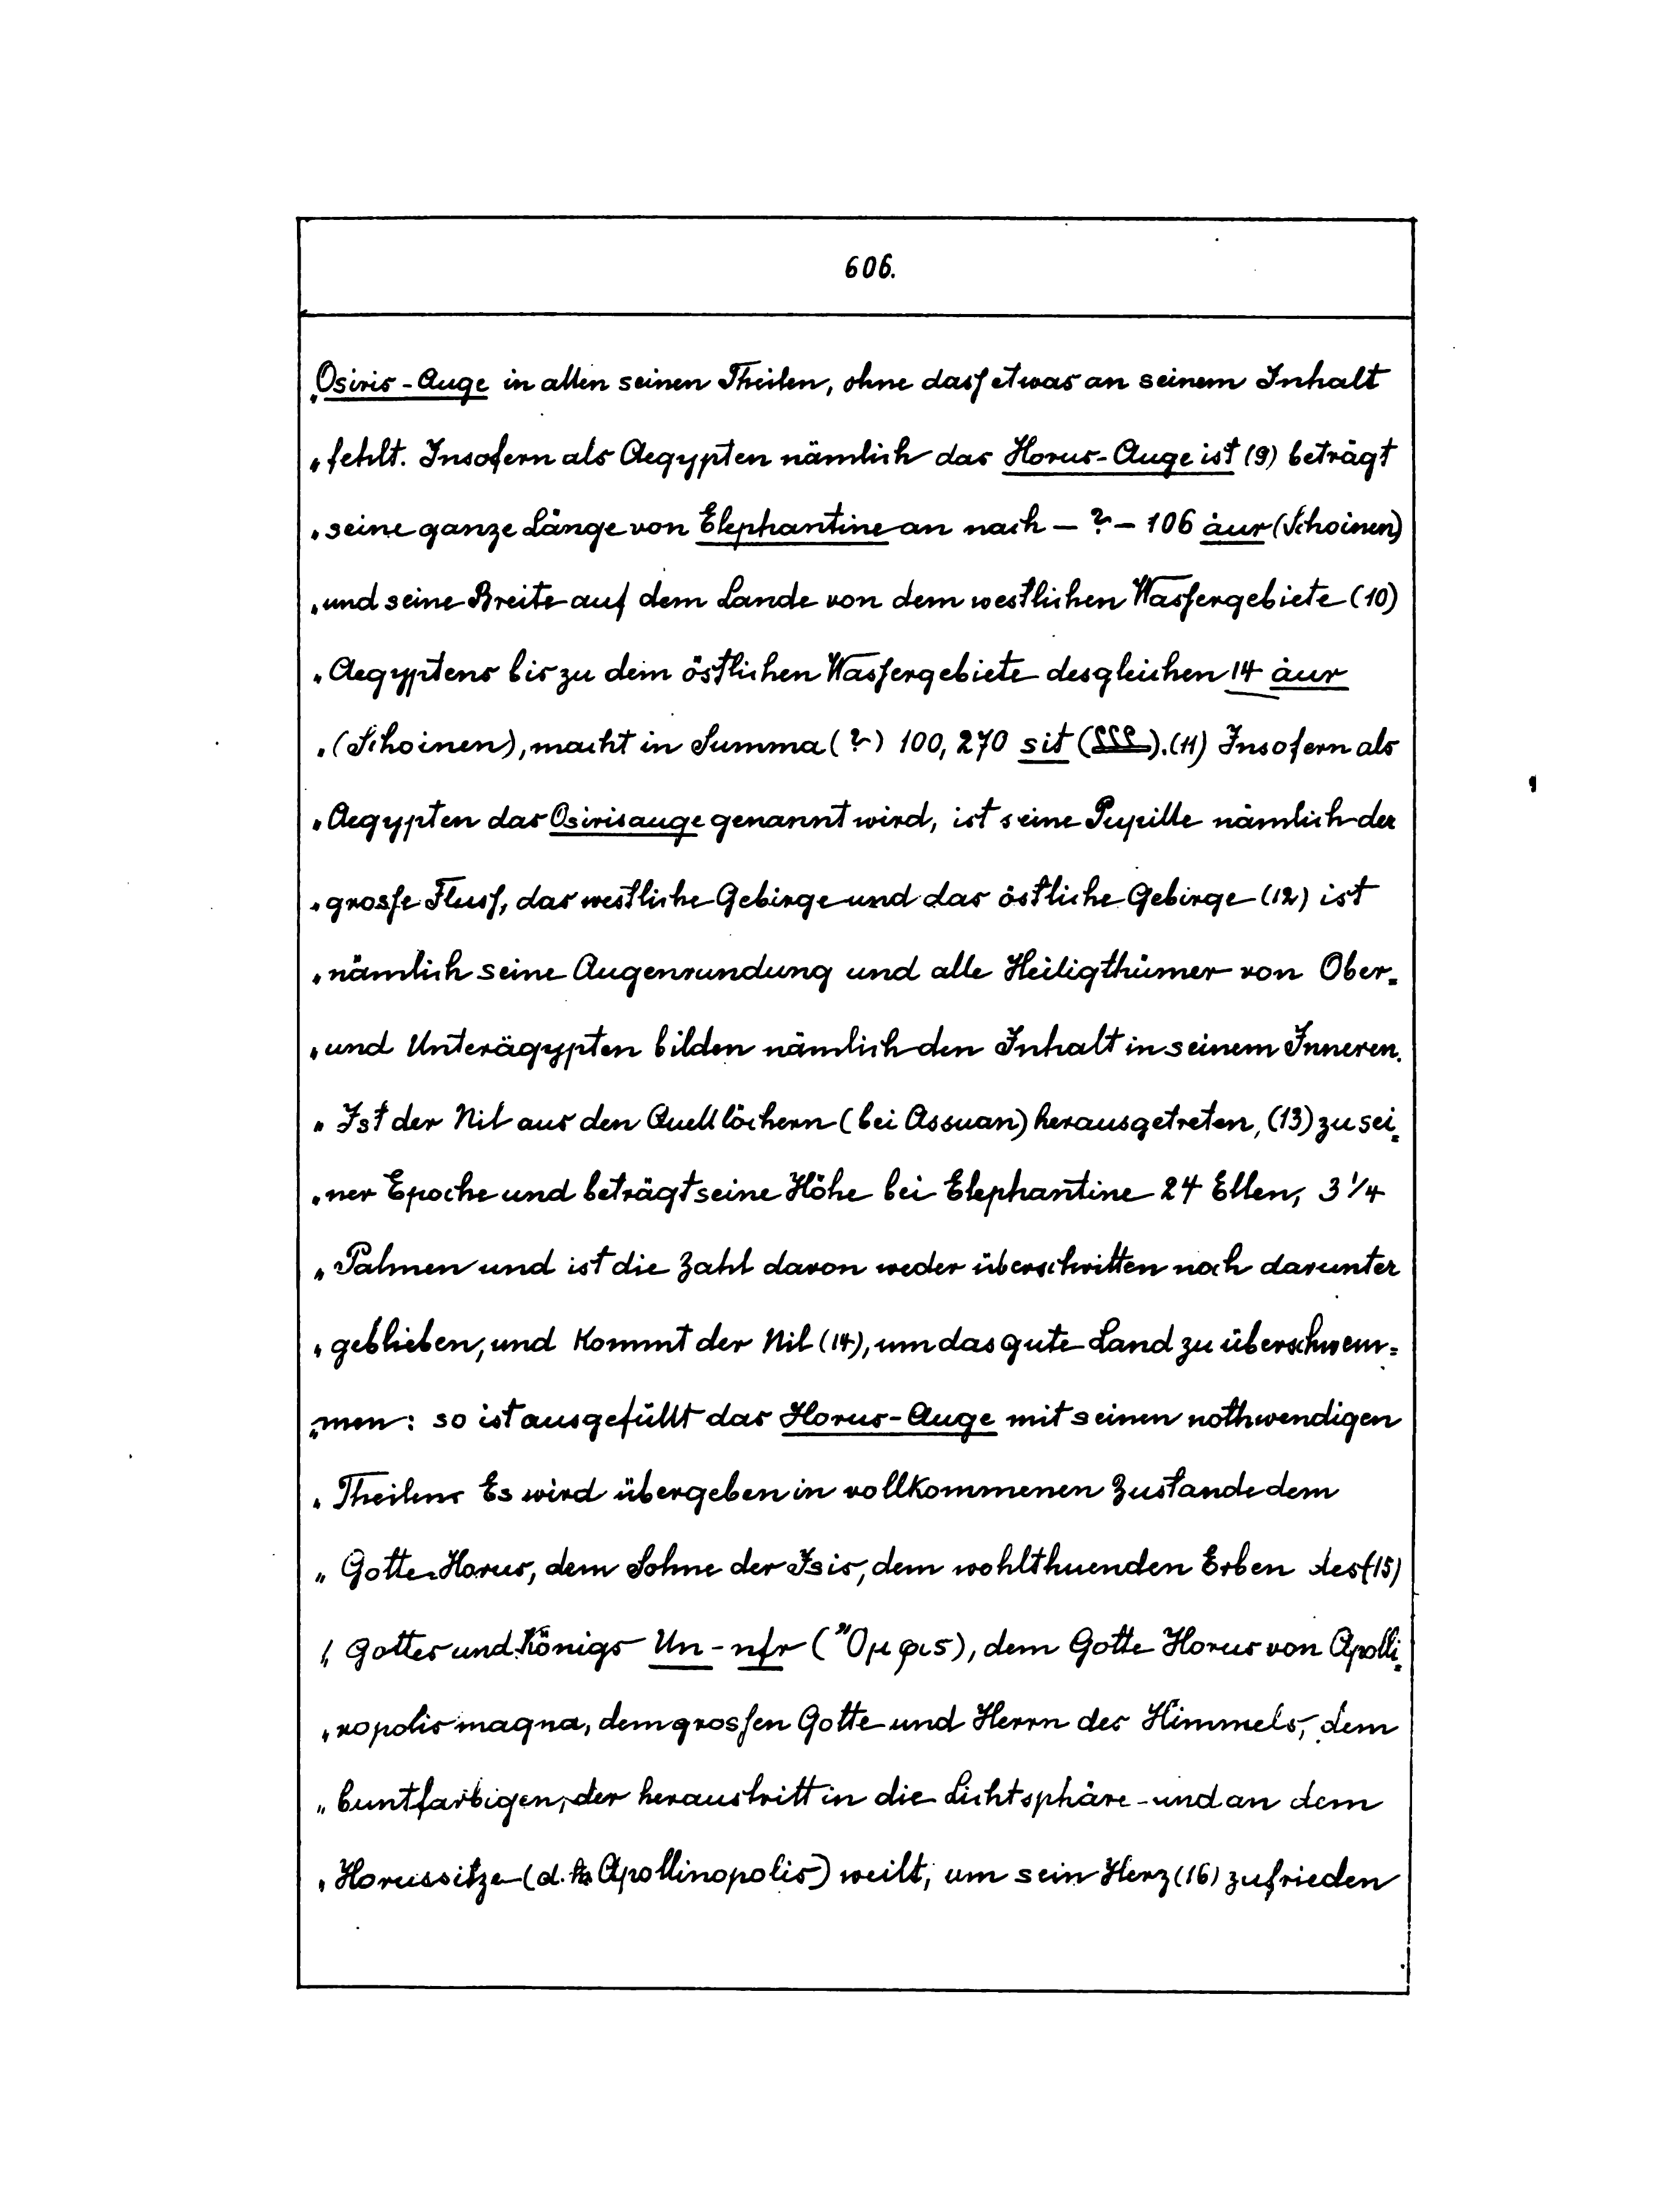 606.
„Osiris-Auge in allen seinen Theilen, ohne dass etwas an seinem Inhalt
„fehlt. Insofern als Aegypten nämlich das Horus-Auge ist (9) beträgt
„seine ganze Länge von Elephantine an nach — ? — 106 àur (Schoinen)
„und seine Breite auf dem Lande von dem westlichen Wassergebiete (10)
„Aegyptens bis zu dem östlichen Wassergebiete desgleichen 14 àur
„(Schoinen), macht in Summa (?) 100,270 sit (). (11) Insofern als
„Aegypten das Osirisauge genannt wird, ist seine Pupille nämlich der
„grosse Fluss, das westliche Gebirge und das östliche Gebirge (12) ist
„nämlich seine Augenrundung und alle Heiligthümer von Ober=
„und Unterägypten bilden nämlich den Inhalt in seinem Inneren.
„Ist der Nil aus den Quelllöchern (bei Assuan) herausgetreten, (13) zu sei=
„ner Epoche und beträgt seine Höhe bei Elephantine 24 Ellen, 3 1/4
„Palmen und ist die Zahl davon weder überschritten noch darunter
„geblieben, und kommt der Nil (14), um das gute Land zu überschwem=
„men: so ist ausgefüllt das Horus-Auge mit seinen nothwendigen
„Theilen. Es wird übergeben in vollkommenen Zustande dem
„Gotte Horus, dem Sohne der Isis, dem wohlthuenden Erben des (15)
„Gottes und Königs Un-nfr (Ὄμφις), dem Gotte Horus von Apolli=
„nopolis magna, dem grossen Gotte und Herrn des Himmels, dem
„buntfarbigen, der heraustritt in die Lichtsphäre und an dem
„Horussitze (d. h. Apollinopolis) weilt, um sein Herz (16) zufrieden